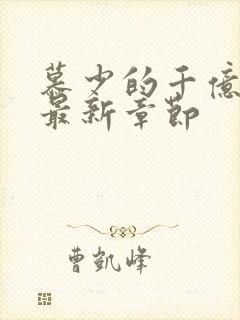 慕少的千億
最新章節
曹凱峰